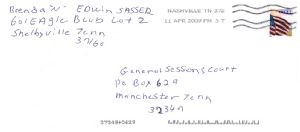 Brenda "N" Edwin SASSER
601 EAgle Blub Lot 2
Shelbyville Tenn
37160
NASHVILLE TN 372
11 APR 2009 PM 3 T
General Sessions Court
Po Box 629
Manchester Tenn
37349